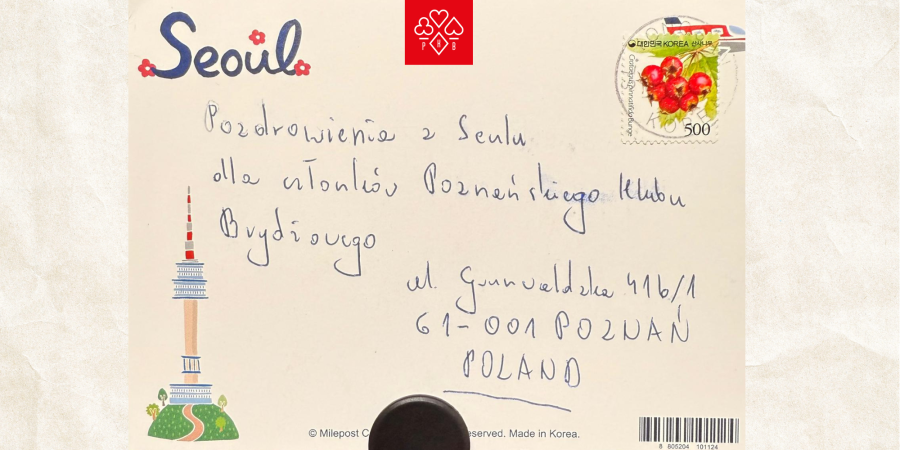 Seoul
P K B
대한민국 KOREA 산사나무
Crataegus pinnatifida Bunge
500
KOREA
Pozdrowienia z Seulu
dla członków Poznańskiego Klubu
Brydżowego
ul. Grunwaldzka 41b/1
61-001 POZNAŃ
POLAND
© Milepost C eserved. Made in Korea.
8 805204 101124